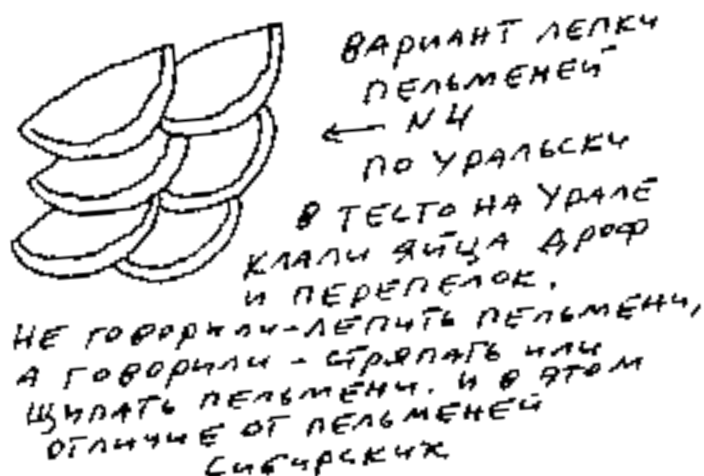 ВАРИАНТ ЛЕПКИ
ПЕЛЬМЕНЕЙ
← N 4
ПО УРАЛЬСКИ
В ТЕСТО НА УРАЛЕ
КЛАЛИ ЯЙЦА ДРОФ
И ПЕРЕПЕЛОК.
НЕ ГОВОРИЛИ-ЛЕПИТЬ ПЕЛЬМЕНИ,
А ГОВОРИЛИ - СТРЯПАТЬ ИЛИ
ЩИПАТЬ ПЕЛЬМЕНИ. И В ЭТОМ
ОТЛИЧИЕ ОТ ПЕЛЬМЕНЕЙ
СИБИРСКИХ